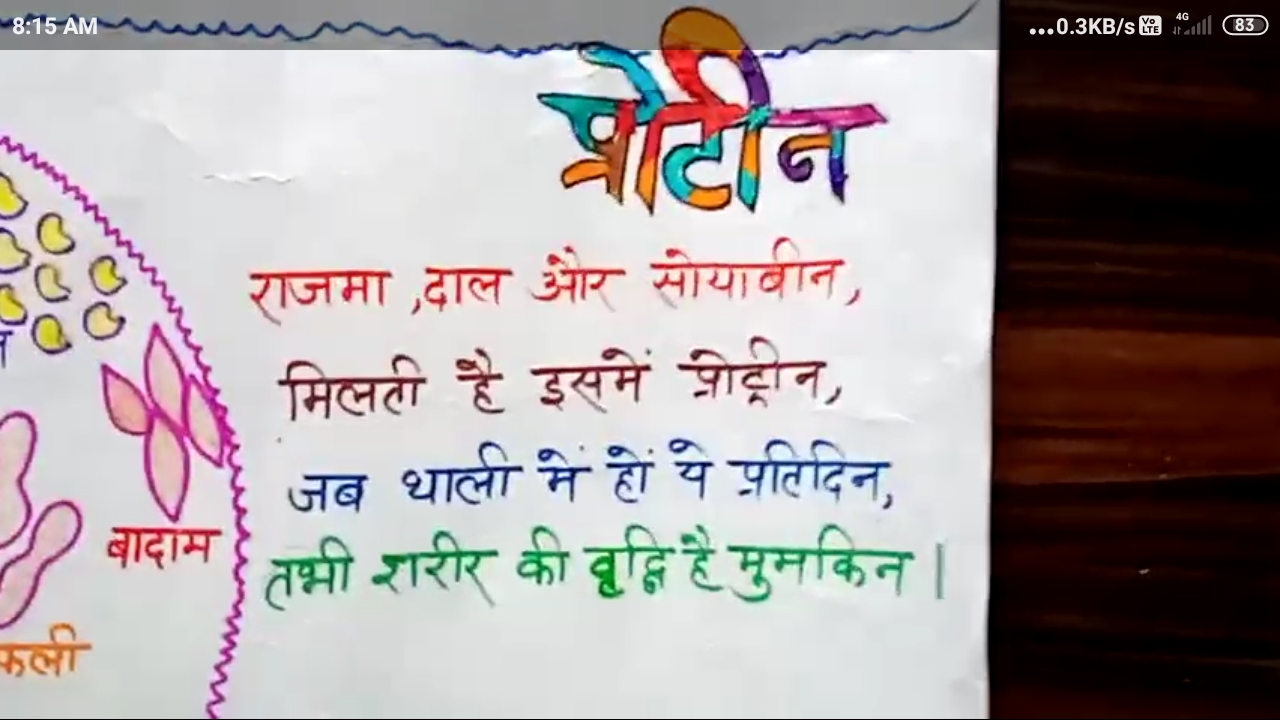 8:15 AM
...0.3KB/s Vo LTE 4G 83
प्रोटीन
राजमा ,दाल और सोयाबीन,
मिलती है इसमें प्रोट्रीन,
जब थाली में हों ये प्रतिदिन,
तभी शरीर की वृद्धि है मुमकिन |
बादाम
फली